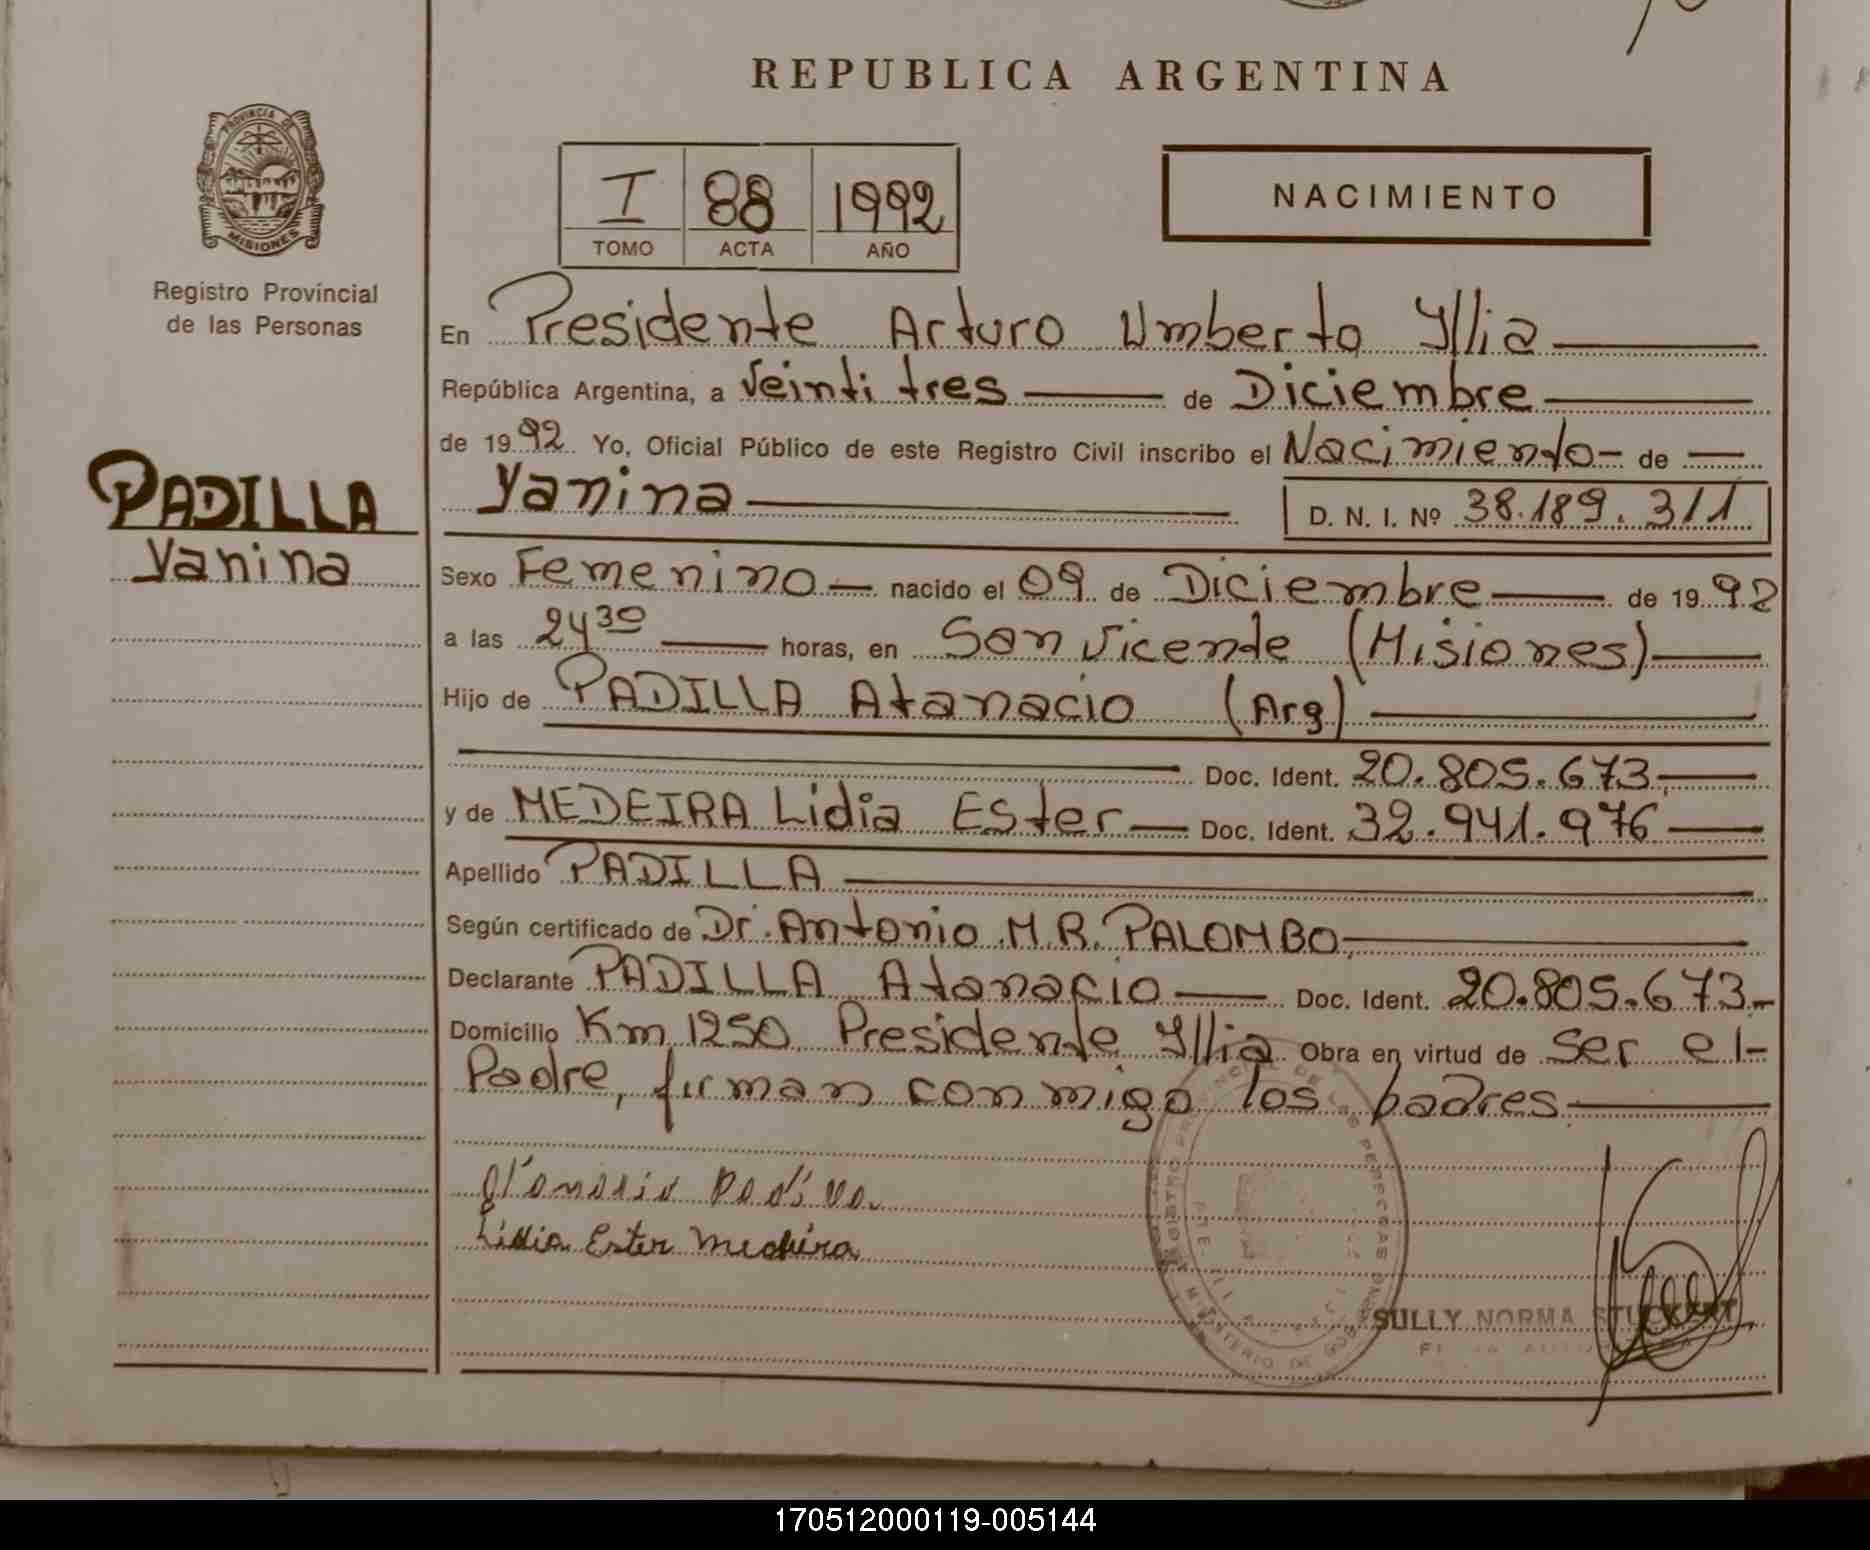 REPUBLICA ARGENTINA
PROVINCIA DE
MISIONES
Registro Provincial
de las Personas
I 88 1992
TOMO ACTA AÑO
NACIMIENTO
En Presidente Arturo Umberto Yllia
República Argentina, a Veinti tres de Diciembre
de 1992 Yo, Oficial Público de este Registro Civil inscribo el Nacimiento de
PADILLA
Yanina
Yanina D. N. I. Nº 38.189.311
Sexo Femenino nacido el 09 de Diciembre de 1992
a las 24 30 horas, en San Vicente (Misiones)
Hijo de PADILLA Atanacio (Arg)
Doc. Ident. 20.805.673
y de MEDEIRA Lidia Ester Doc. Ident. 32.941.976
Apellido PADILLA
Según certificado de Dr. Antonio M.R. PALOMBO
Declarante PADILLA Atanacio Doc. Ident. 20.805.673
Domicilio Km 1250 Presidente Yllia Obra en virtud de ser el
Padre, firman conmigo los padres
Lidia Ester Medeira
SULLY NORMA STUCKERT
170512000119-005144